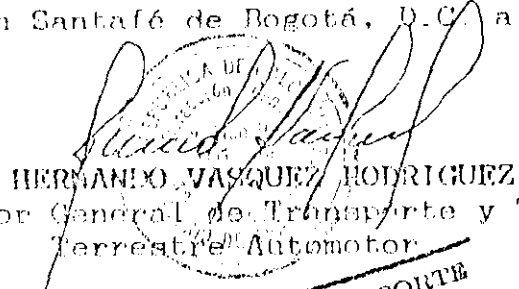 n Santafé de Bogotá, D.C. a
HERNANDO VASQUEZ RODRIGUEZ
or General de Transporte y T
Terrestre Automotor
PORTE